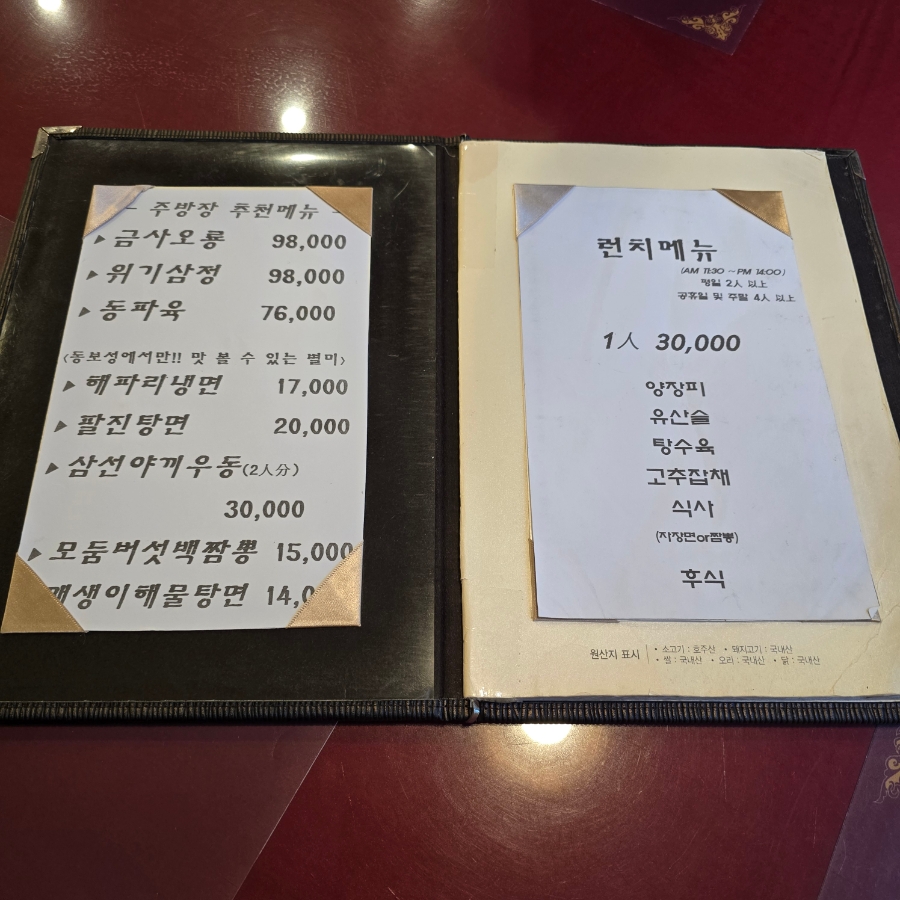 - 주방장 추천메뉴 -
▶ 금사오룡 98,000
▶ 위기삼정 98,000
▶ 동파육 76,000
(동보성에서만!! 맛 볼 수 있는 별미)
▶ 해파리냉면 17,000
▶ 팔진탕면 20,000
▶ 삼선야끼우동(2人分)
30,000
▶ 모둠버섯백짬뽕 15,000
매생이해물탕면 14,0
런치메뉴
(AM 11:30 ~ PM 14:00)
평일 2人 以上
공휴일 및 주말 4人 以上
1人 30,000
양장피
유산슬
탕수육
고추잡채
식사
(자장면or짬뽕)
후식
원산지 표시
• 소고기 : 호주산 • 돼지고기 : 국내산
• 쌀 : 국내산 • 오리 : 국내산 • 닭 : 국내산